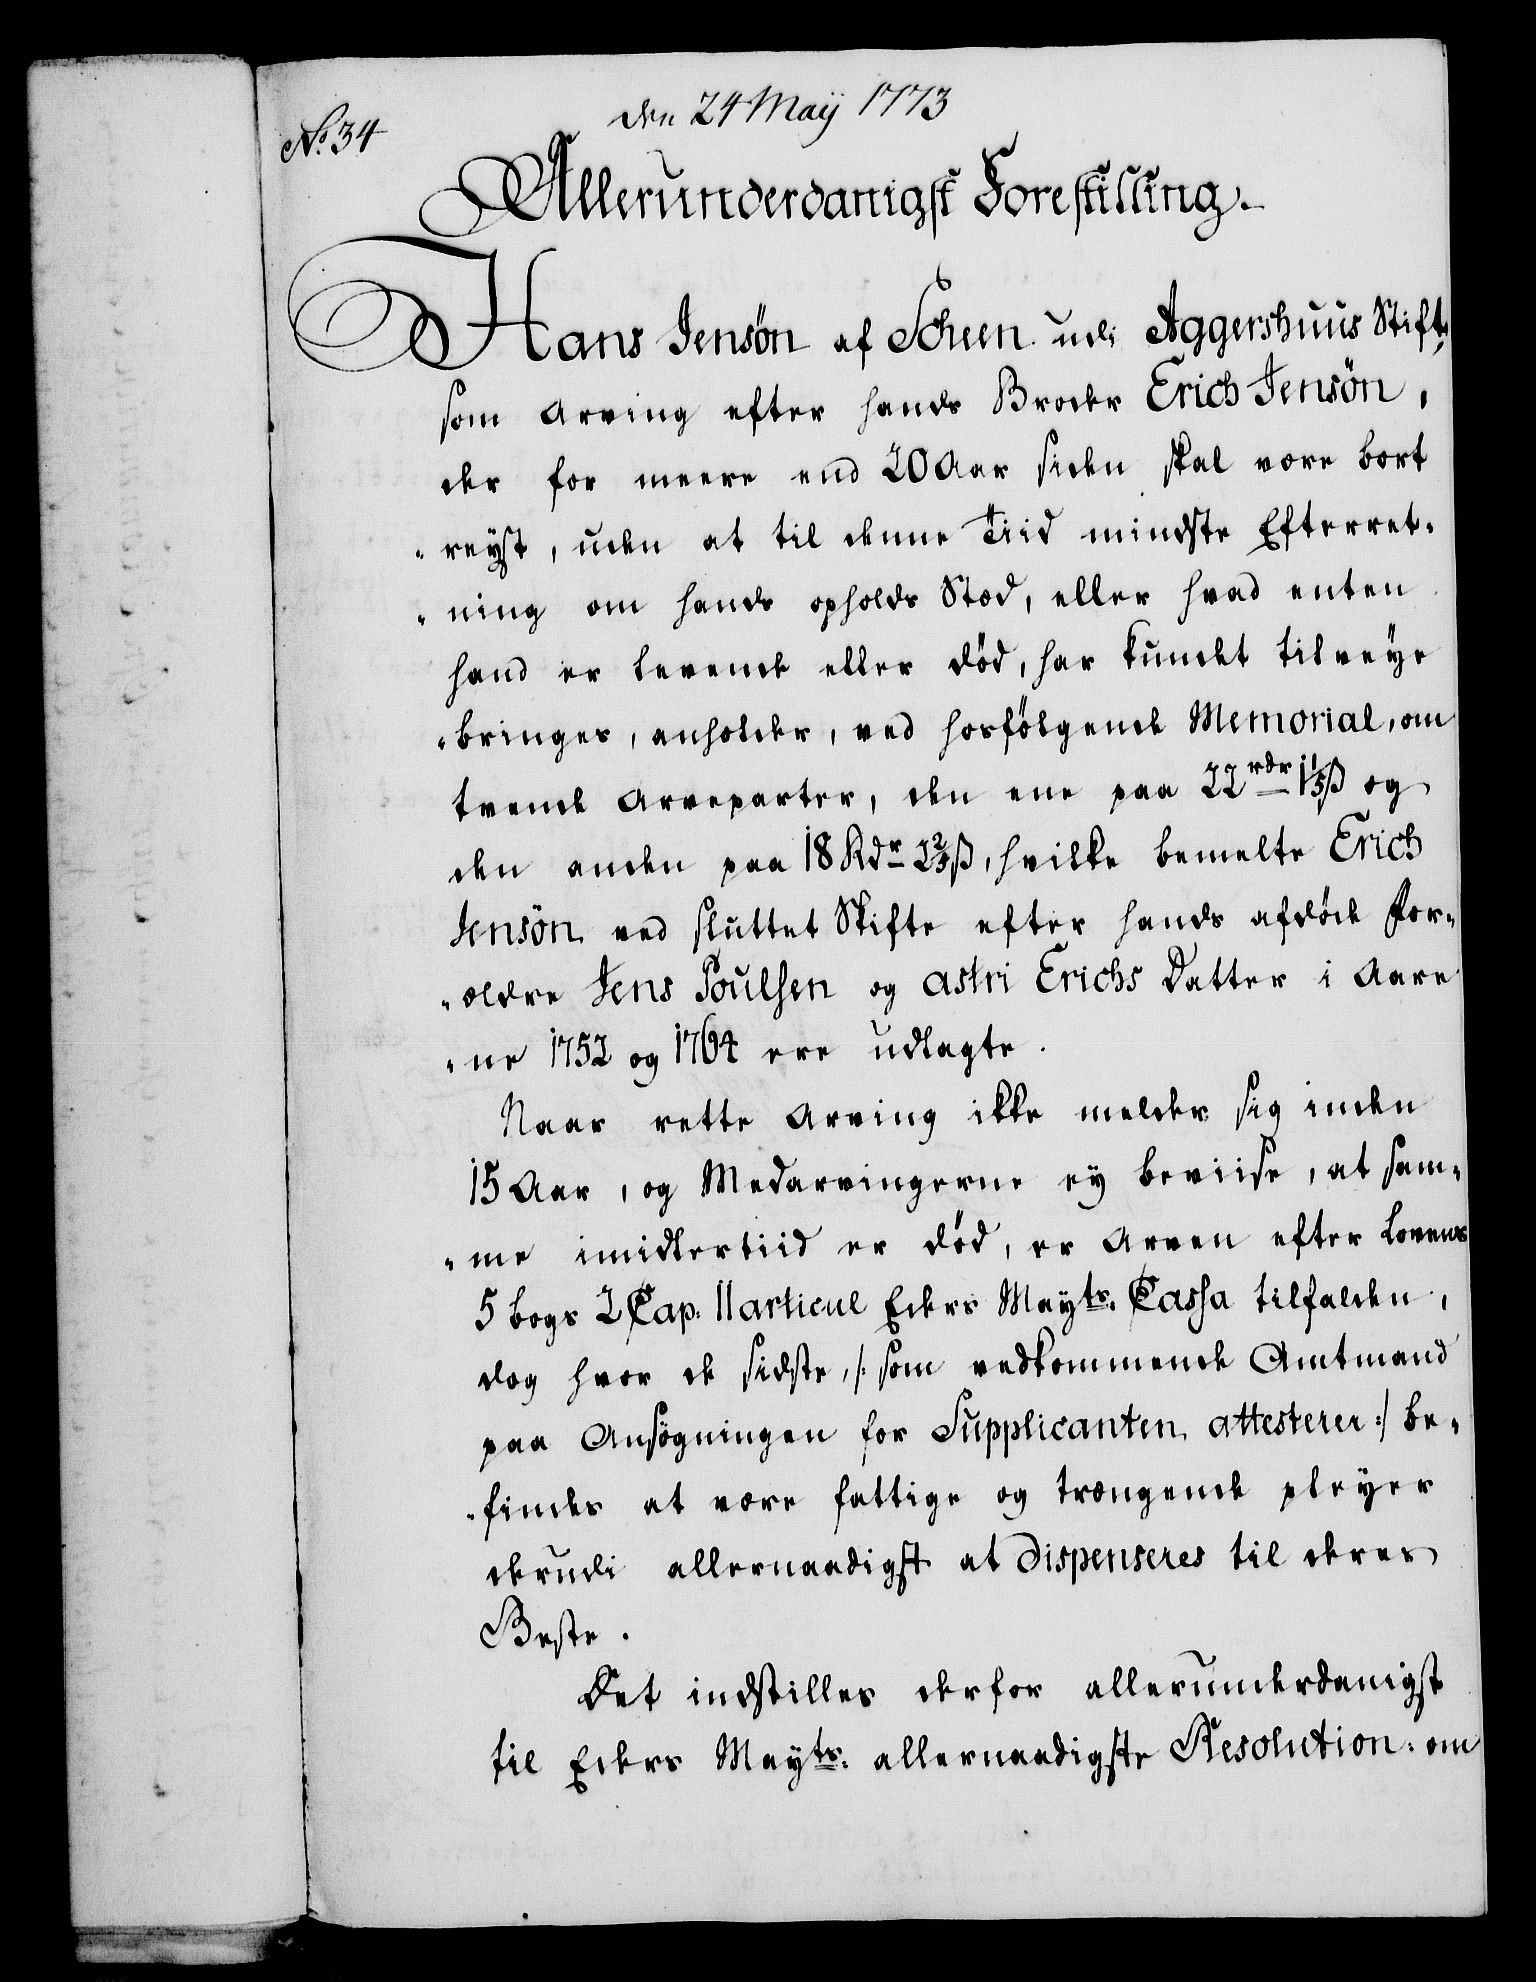 No. 34
den 24 Maÿ 1773
Allerunderdanigst Forestilling.
Hans Jensøn af Scheen udi Aggershuus Stift,
som Arving efter hands Broder Erich Jensøn,
der for meere end 20 Aar siden skal være bort
reÿst, uden at til denne Tiid mindste Efterret-
ning om hands opholds Stæd, eller hvad enten
hand er levende eller død, har kundet tilveÿe
bringes, anholder, ved hosfølgende Memorial, om
tvende Arveparter, den ene paa 22 rdr 1 1/5 ß og
den anden paa 18 Rdr 2 2/3 ß, hvilke bemelte Erich
Jensøn ved sluttet Skifte efter hands afdøde For-
ældre Jens Poulsen og Astri Erichs Datter i Aare
ne 1752 og 1764 ere udlagte.
Naar rette Arving ikke melder sig inden
15 Aar, og Medarvingerne eÿ beviise, at sam-
me imidlertiid er død, er Arven efter Lovens
5 bogs 2 Cap: 11 articul Eders Mayts. Cassa tilfalden,
dog hvor de sidste, /: som vedkommende Amtmand
paa Ansøgningen for Supplicanten attesterer :/ be-
findes at være fattige og trængende pleÿer
derudi allernaadigst at dispenseres til deres
Beste.
Det indstilles derfor allerunderdanigst
til Eders Mayts. allernaadigste Resolution: om